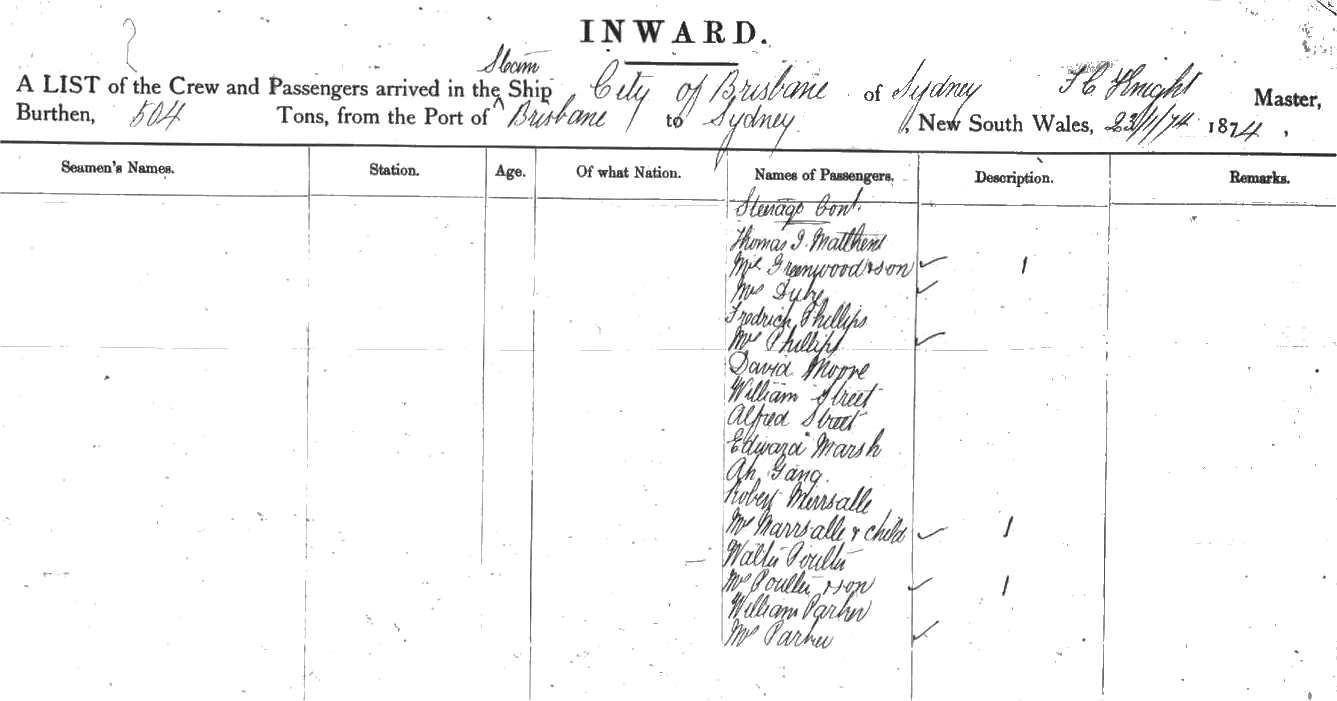 INWARD.
Steam
A LIST of the Crew and Passengers arrived in the Ship City of Brisbane of Sydney F C Knight Master,
Burthen, 504 Tons, from the Port of ^ Brisbane to Sydney, New South Wales, 23/1/74 1874,
Seamen's Names. Station. Age. Of what Nation. Names of Passengers. Description. Remarks.
Steerage Cont.
Thomas J. Matthews
Mrs Greenwood & son ✓ 1
Mrs ✓
Fredrich Phillips
Mrs Phillips ✓
David Moore
William Street
Alfred Street
Edward Marsh
Ah Gang
Robert
Mrs Marrsalle & child ✓ 1
Walter Poulter
Mrs Poulter & son ✓ 1
William Parker
Mrs Parker ✓